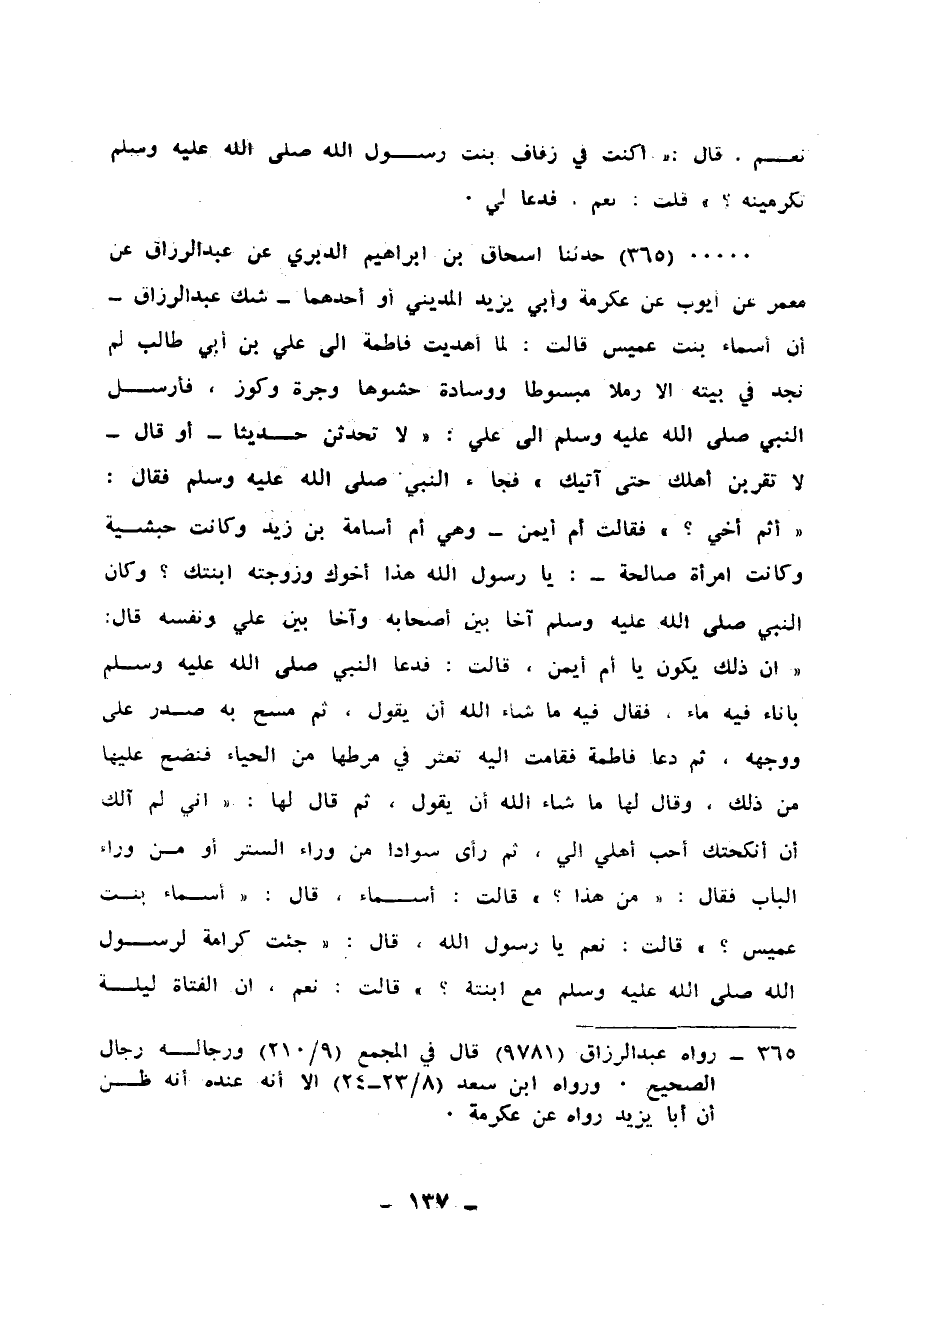 نعـــم . قال :« اكنت في زفاف بنت رســـول الله صلى الله عليه وسلم
تكرمينه ؟ » قلت : نعم . فدعا لي .
..... (٣٦٥) حدثنا اسحاق بن ابراهيم الدبري عن عبدالرزاق عن
معمر عن أيوب عن عكرمة وأبي يزيد المديني أو أحدهما ــ شك عبدالرزاق ــ
أن أسماء بنت عميس قالت : لما أهديت فاطمة الى علي بن أبي طالب لم
نجد في بيته الا رملا مبسوطا ووسادة حشوها وجرة وكوز ، فأرســـل
النبي صلى الله عليه وسلم الى علي : « لا تحدثن حــديثا ــ أو قال ــ
لا تقربن أهلك حتى آتيك » فجا ء النبي صلى الله عليه وسلم فقال :
« أثم أخي ؟ » فقالت أم أيمن ــ وهي أم أسامة بن زيد وكانت حبشــية
وكانت امرأة صالحة ــ : يا رسول الله هذا أخوك وزوجته ابنتك ؟ وكان
النبي صلى الله عليه وسلم آخا بين أصحابه وآخا بين علي ونفسه قال:
« ان ذلك يكون يا أم أيمن ، قالت : فدعا النبي صلى الله عليه وســلم
باناء فيه ماء ، فقال فيه ما شاء الله أن يقول ، ثم مسح به صــدر على
ووجهه ، ثم دعا فاطمة فقامت اليه تعثر في مرطها من الحياء فنضح عليها
من ذلك ، وقال لها ما شاء الله أن يقول ، ثم قال لها : « اني لم آلك
أن أنكحتك أحب أهلي الي ، ثم رأى سوادا من وراء الستر أو مــن وراء
الباب فقال : « من هذا ؟ » قالت : أســـماء ، قال : « أســماء بنــت
عميس ؟ » قالت : نعم يا رسول الله ، قال : « جئت كرامة لرســـول
الله صلى الله عليه وسلم مع ابنتة ؟ » قالت : نعم ، ان الفتاة ليلـــة
٣٦٥ ــ رواه عبدالرزاق (٩٧٨١) قال في المجمع (٢١٠/٩) ورجالـــه رجال
الصحيح . ورواه ابن سعد (٢٣/٨ــ٢٤) الا أنه عنده أنه ظـــن
أن أبا يزيد رواه عن عكرمة .
ــ ١٣٧ ــ